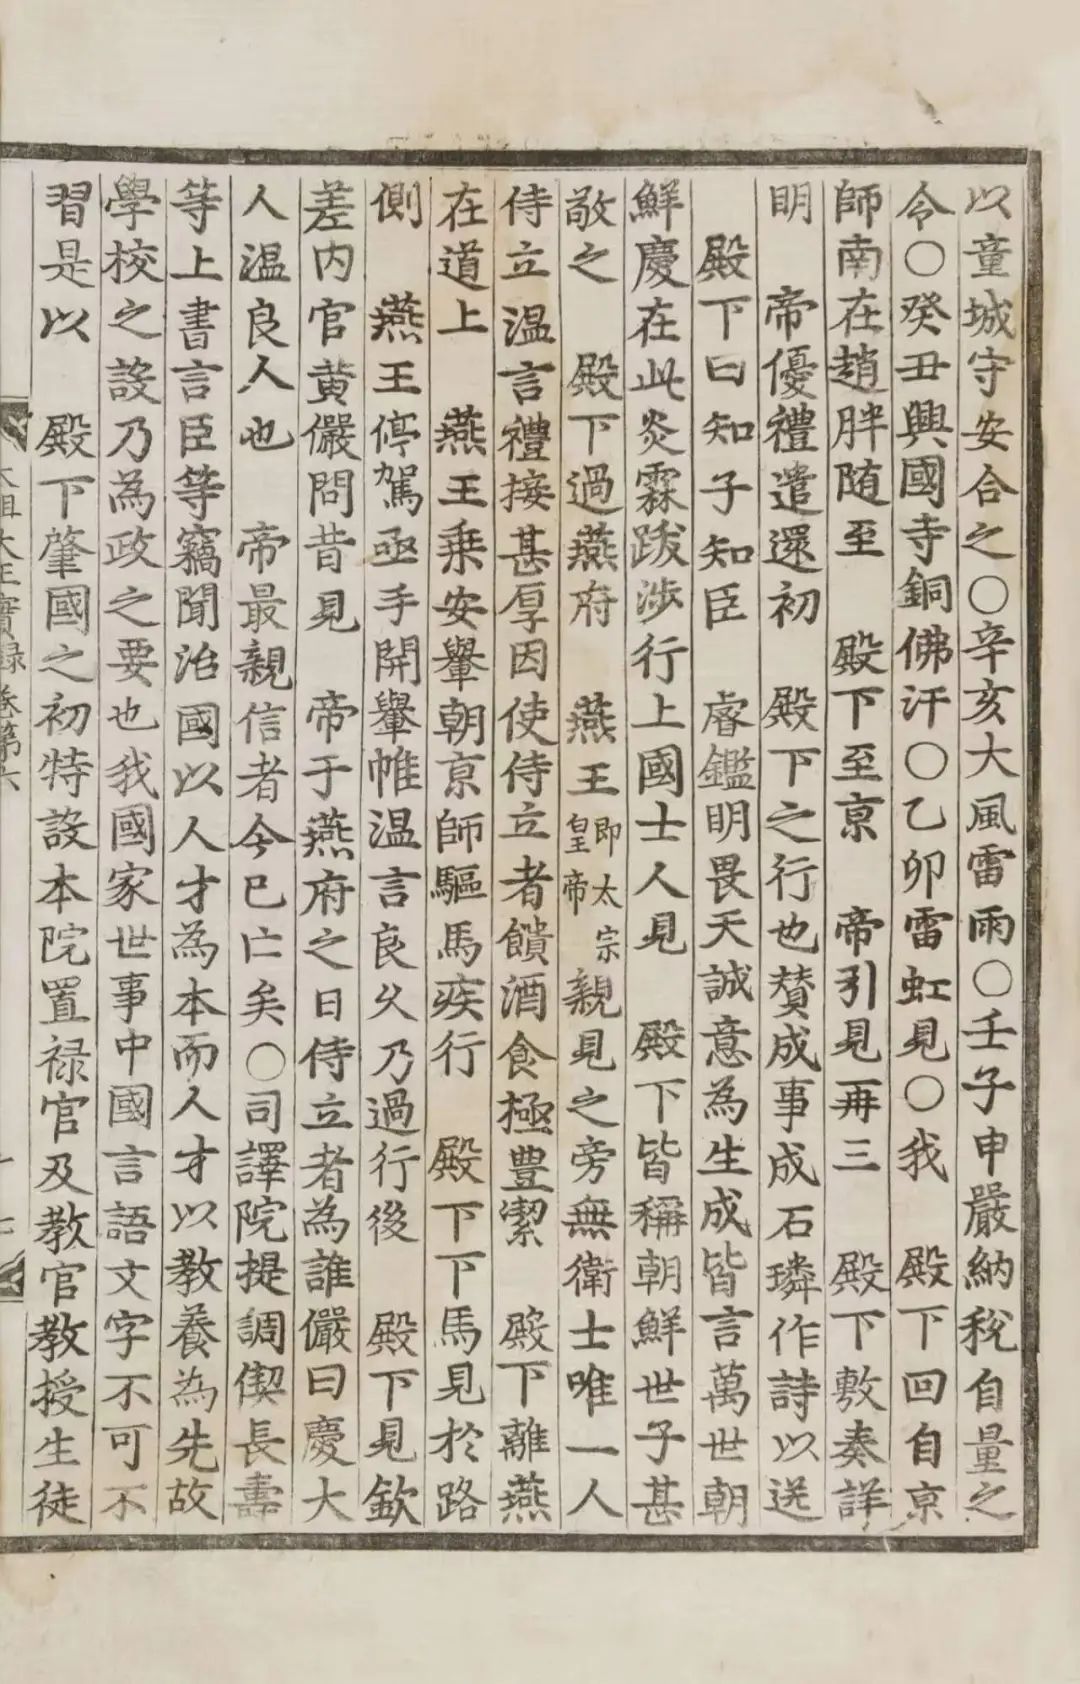 以童城守安合之○辛亥大風雷雨○壬子申嚴納稅自量之
令○癸丑興國寺銅佛汗○乙卯雷虹見○我　殿下回自京
師南在趙胖随至　殿下至京　帝引見再三　殿下敷奏詳
明　帝優禮遣還初　殿下之行也賛成事成石璘作詩以送
殿下曰知子知臣　睿鑑明畏天誠意為生成皆言萬世朝
鮮慶在此炎霖跋涉行上國士人見　殿下皆稱朝鮮世子甚
敬之　殿下過燕府　燕王即太宗皇帝親見之旁無衛士唯一人
侍立温言禮接甚厚因使侍立者饋酒食極豊潔　殿下離燕
在道上　燕王乗安轝朝京師驅馬疾行　殿下下馬見於路
側　燕王停駕亟手開轝帷温言良久乃過行後　殿下見欽
差内官黄儼問昔見　帝于燕府之日侍立者為誰儼曰慶大
人温良人也　帝最親信者今已亡矣○司譯院提調偰長壽
等上書言臣等竊聞治國以人才為本而人才以教養為先故
學校之設乃為政之要也我國家世事中國言語文字不可不
習是以　殿下肇國之初特設本院置禄官及教官教授生徒
太祖大王實録卷第六